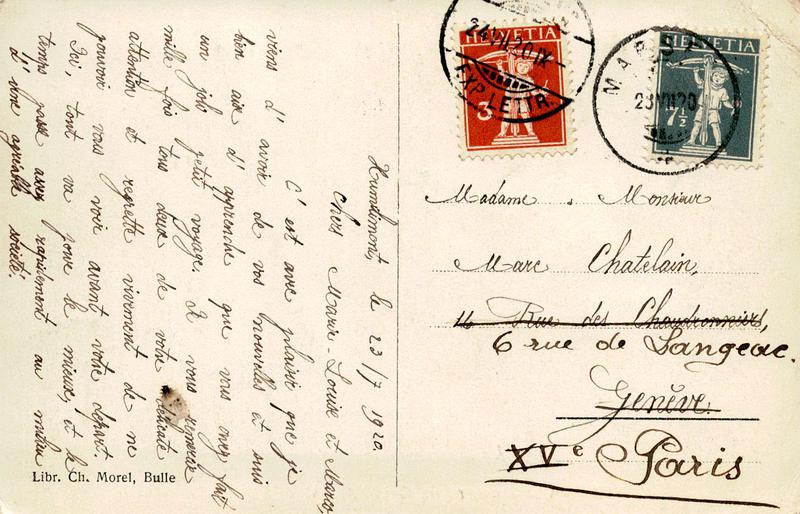 Humilimont, le 23/7 1920.
Chers Marie-Louise et Marco,
C'est avec plaisir que je
viens d'avoir de vos nouvelles et suis
bien aise d'apprendre que vous avez fait
un joli petit voyage. Je vous remercie
mille fois tous deux de votre délicate
attention et regrette vivement de ne
pouvoir vous voir avant votre départ.
Ici, tout va pour le mieux, et le
temps passe assez rapidement au milieu
d'une agréable société!
Libr. Ch. Morel, Bulle
HELVETIA
3
24 VII 20 IX
EXP. LETTR.
HELVETIA
7½
MARS
23 VII 20
Madame, Monsieur
Marc Chatelain,
16 Rue des Chaudronniers,
6 rue de Langeac.
Genève.
XVe Paris